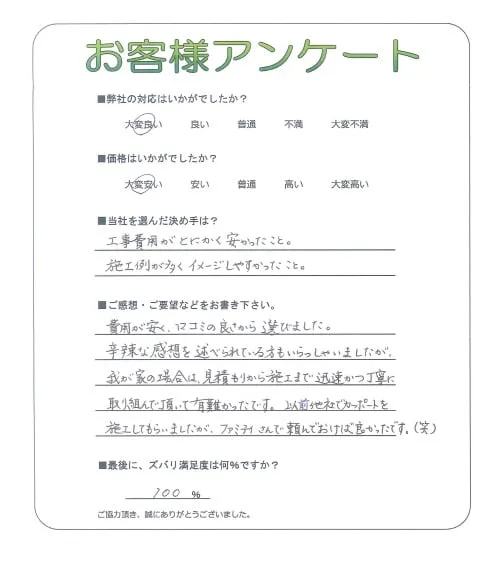 お客様アンケート
■弊社の対応はいかがでしたか？
大変良い 良い 普通 不満 大変不満
■価格はいかがでしたか？
大変安い 安い 普通 高い 大変高い
■当社を選んだ決め手は？
工事費用がとにかく安かったこと。
施工例が多くイメージしやすかったこと。
■ご感想・ご要望などをお書き下さい。
費用が安く、口コミの良さから選びました。
辛辣な感想を述べられている方もいらっしゃいましたが、
我が家の場合は、見積もりから施工まで迅速かつ丁寧に
取り組んで頂いて有難かったです。以前他社でカーポートを
施工してもらいましたが、ファミティさんで頼んでおけば良かったです。(笑)
■最後に、ズバリ満足度は何％ですか？
100 %
ご協力頂き、誠にありがとうございました。